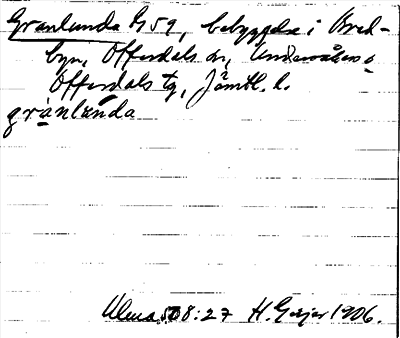 Granlunda 159, bebyggelse i Bred-
byn, Offerdals sn, Undersåkers o
Offerdals tg, Jämtl. l.
grànlǜnda
Ulma 508:27 H. Geijer 1906.